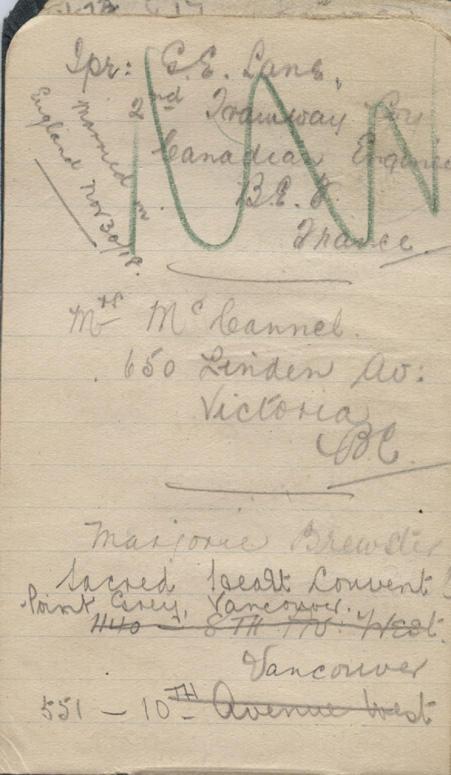 Spr: G.E. Lane,
2nd Tramway Coy
Canadian Engineers
B.E.F.
France.
Married in
England Nov 30/18.
Mrs McCannel.
650 Linden Av:
Victoria
BC
Marjorie Brewster
Sacred Heart Convent
Point Grey, Vancouver.
440 - 8TH AV. West.
Vancouver
551 - 10TH Avenue West